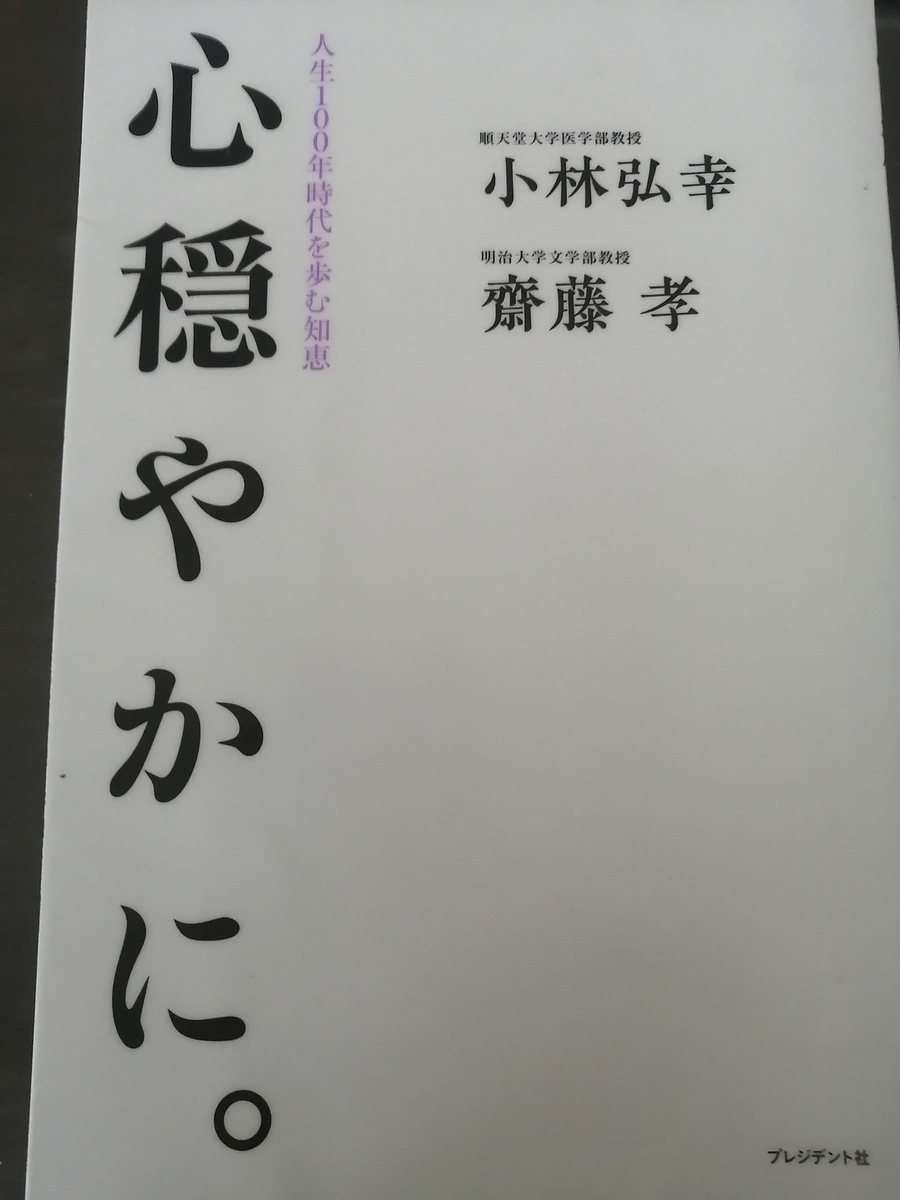 人生100年時代を歩む知恵
心穏やかに。
順天堂大学医学部教授
小林弘幸
明治大学文学部教授
齋藤 孝
プレジデント社